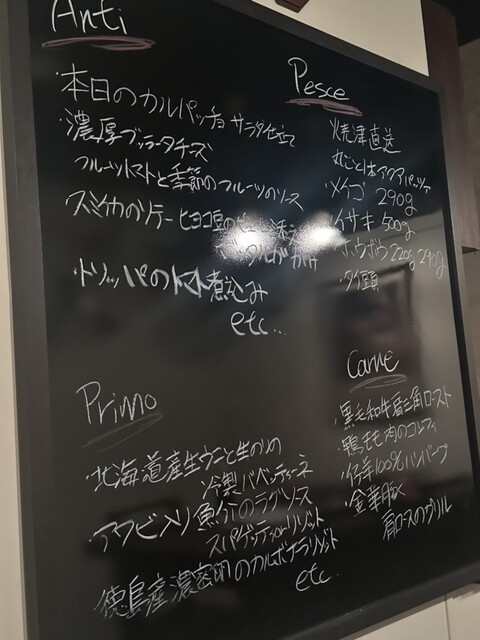 Anti
・本日のカルパッチョ サラダ仕立て
・濃厚ブッラータチーズ
フルーツトマトと季節のフルーツのソース
スミイカのソテー ヒヨコ豆の
・トリッパのトマト煮込み
etc...
Pesce
焼津直送
丸ごと1本アクアパッツァ
・メイゴ 290g
・イサキ 500g
・ホウボウ 220g 290g
・タイ頭
Primo
・北海道産生ウニと生のりの
冷製カペッティーネ
・アワビ入り魚介のラグソース
スパゲッティorリゾット
・徳島産濃密卵のカルボナーラリゾット
etc.
Carne
・黒毛和牛肩三角ロースト
・鴨モモ肉のコンフィ
・仔羊100%ハンバーグ
・金華豚
肩ロースのグリル